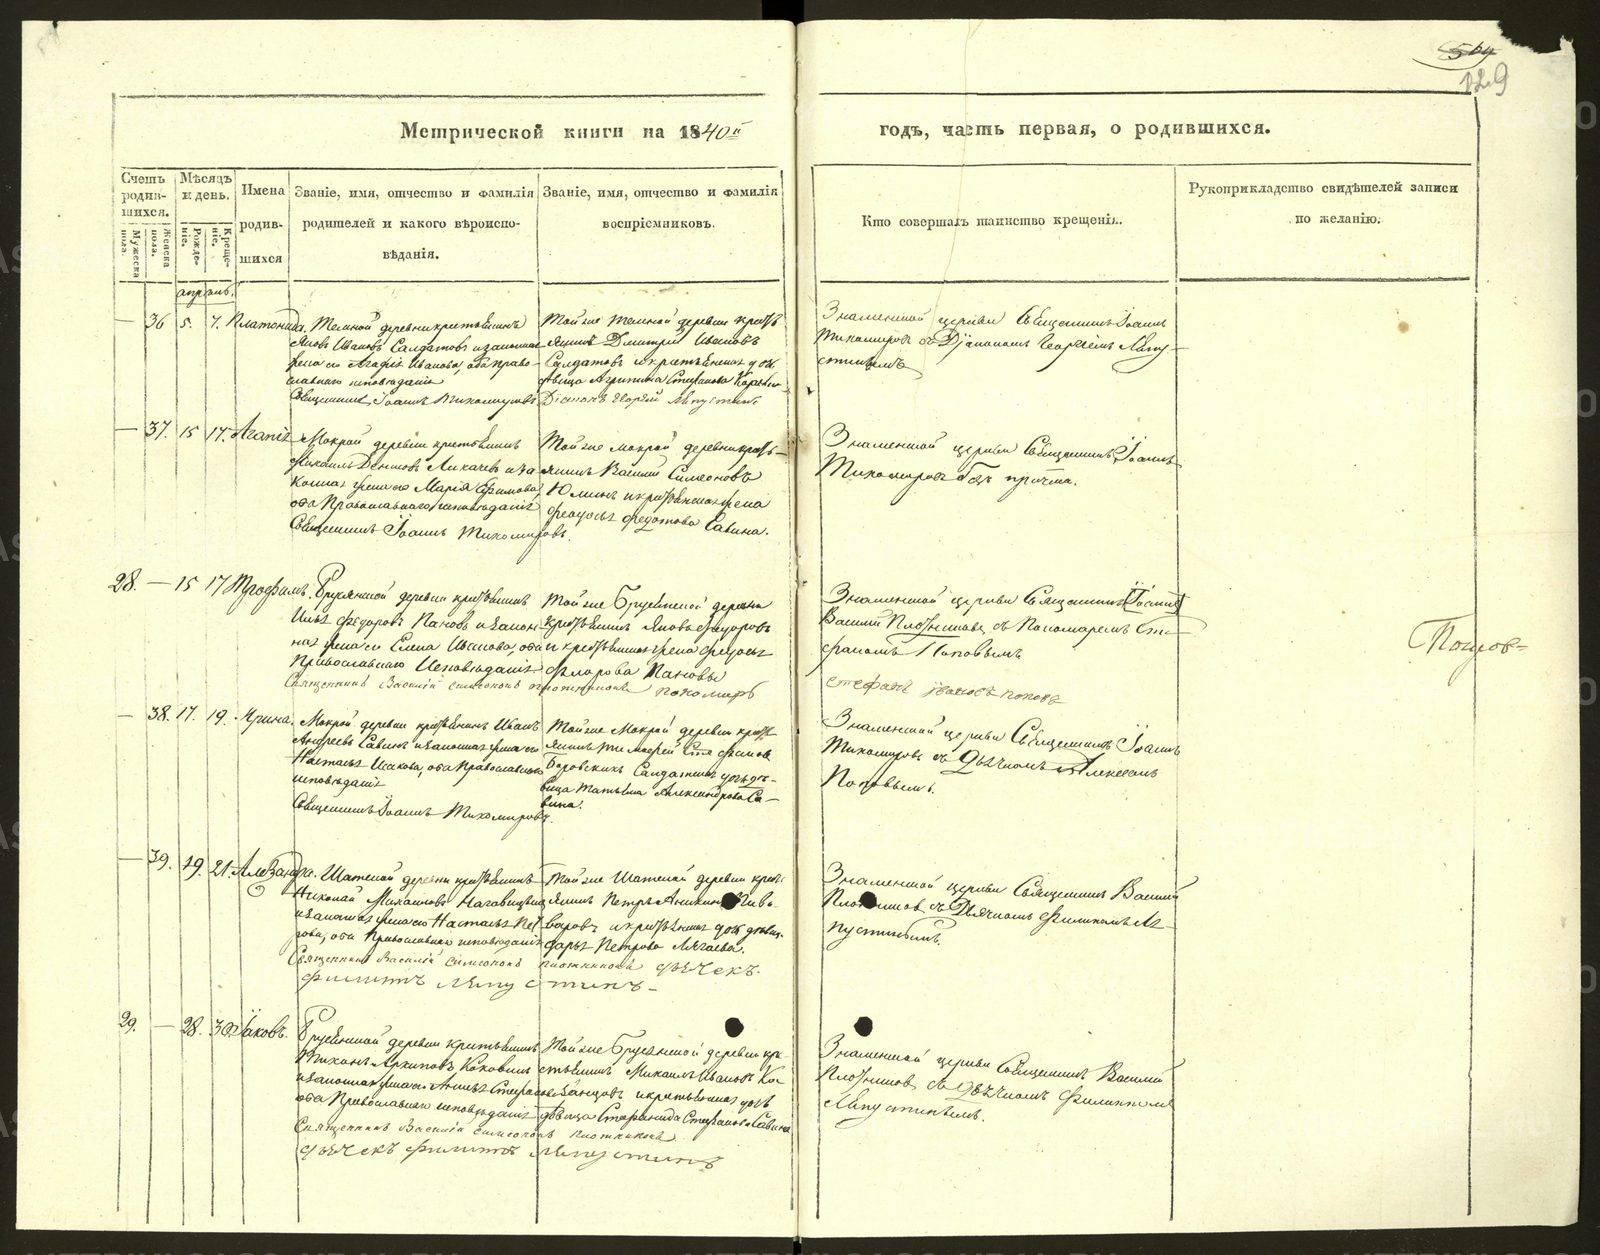 569
129
Метрической книги на 1840й
годъ, часть первая, о родившихся.
Счетъ родив-шихся.
Мужеска пола.
Женска пола.
Мѣсяцъ и день.
Рожде-ніе.
Креще-ніе.
Имена родив-шихся
Званіе, имя, отчество и фамилія
родителей и какого вѣроиспо-
вѣданія.
Званіе, имя, отчество и фамилія
воспріемниковъ.
Кто совершалъ таинство крещенія.
Рукоприкладство свидѣтелей записи
по желанію.
апрель.
— 36 5. 7. Платонида.
деревни крестьянинъ
Яковъ Ивановъ Солдатовъ и законная
жена его Агафія Иванова, оба право-
славнаго исповѣданія
Священникъ Іоаннъ Тихомировъ
Той же деревни кресть
янинъ Дмитрій Ивановъ
Солдатовъ и крестьянская дочь
дѣвица Агрипина Стефанова
Діаконъ Георгій Ляпустинъ
Знаменской церкви Священникъ Іоаннъ
Тихомировъ съ Діакономъ Георгіемъ Ляпу-
стинымъ
— 37. 15 17. Агапія
Мокрой деревни крестьянинъ
Михаилъ Лихачевъ и за
конная жена его Марія Ефимова,
оба Православнаго исповѣданія
Священникъ Іоаннъ Тихомировъ.
Той же Мокрой деревни кресть-
янинъ Василій Симеоновъ
и крестьянская жена
Феодосья Федотова Савина.
Знаменской церкви Священникъ Іоаннъ
Тихомировъ безъ причта.
28. — 15 17 Трофимъ.
Брусянской деревни крестьянинъ
Илья Федоровъ Пановъ и закон-
ная жена его Елена Иванова, оба
Православнаго Исповѣданія
Священникъ Василій Симеоновъ Плотниковъ пономарь
Той же Брусянской деревни
крестьянинъ Яковъ Федоровъ
и крестьянская жена Федосья
Флорова Пановы
Знаменской церкви Священникъ
Василій Плотниковъ съ Пономаремъ Сте-
фаномъ Поповымъ
стефанъ ивановъ поповъ
— 38. 17. 19. Ирина.
Мокрой деревни крестьянинъ Иванъ
Андреевъ Савинъ и законная жена его
Настасья Исакова, оба Православнаго
исповѣданія
Священникъ Іоаннъ Тихомировъ.
Той же Мокрой деревни кресть
янинъ Тимофей Стефановъ
Боровскихъ Солдатская дочь дѣ-
вица Татьяна Александрова Са-
вина.
Знаменской церкви Священникъ Іоаннъ
Тихомировъ съ Дьячкомъ Алексѣемъ
Поповымъ.
— 39. 19. 21. Александра.
деревни крестьянинъ
Николай Михайловъ
и законная жена его Настасья Пет
рова, оба Православнаго исповѣданія
Священникъ Василій Симеоновъ Плотниковъ дьячекъ
филиппъ Ляпустинъ
Той же деревни кресть
янинъ Петръ Аникинъ Пиво
варовъ и крестьянская дочь дѣвица
Дарья Петрова
Знаменской церкви Священникъ Василій
Плотниковъ съ Дьячкомъ Филипомъ Ля-
пустинымъ.
29. — 28. 30 Іаковъ.
Брусянской деревни крестьянинъ
Тихонъ Архиповъ
и законная жена его Анна Стефанова
оба Православнаго исповѣданія
Священникъ Василій Симеоновъ Плотниковъ
дьячекъ филиппъ Ляпустинъ
Той же Брусянской деревни кре-
стьянинъ Михаилъ Ивановъ Ка-
занцовъ и крестьянская дочь
дѣвица Стефанида Стефанова Савина
Знаменской церкви Священникъ Василій
Плотниковъ съ Дьячкомъ Филиппомъ
Ляпустинымъ.